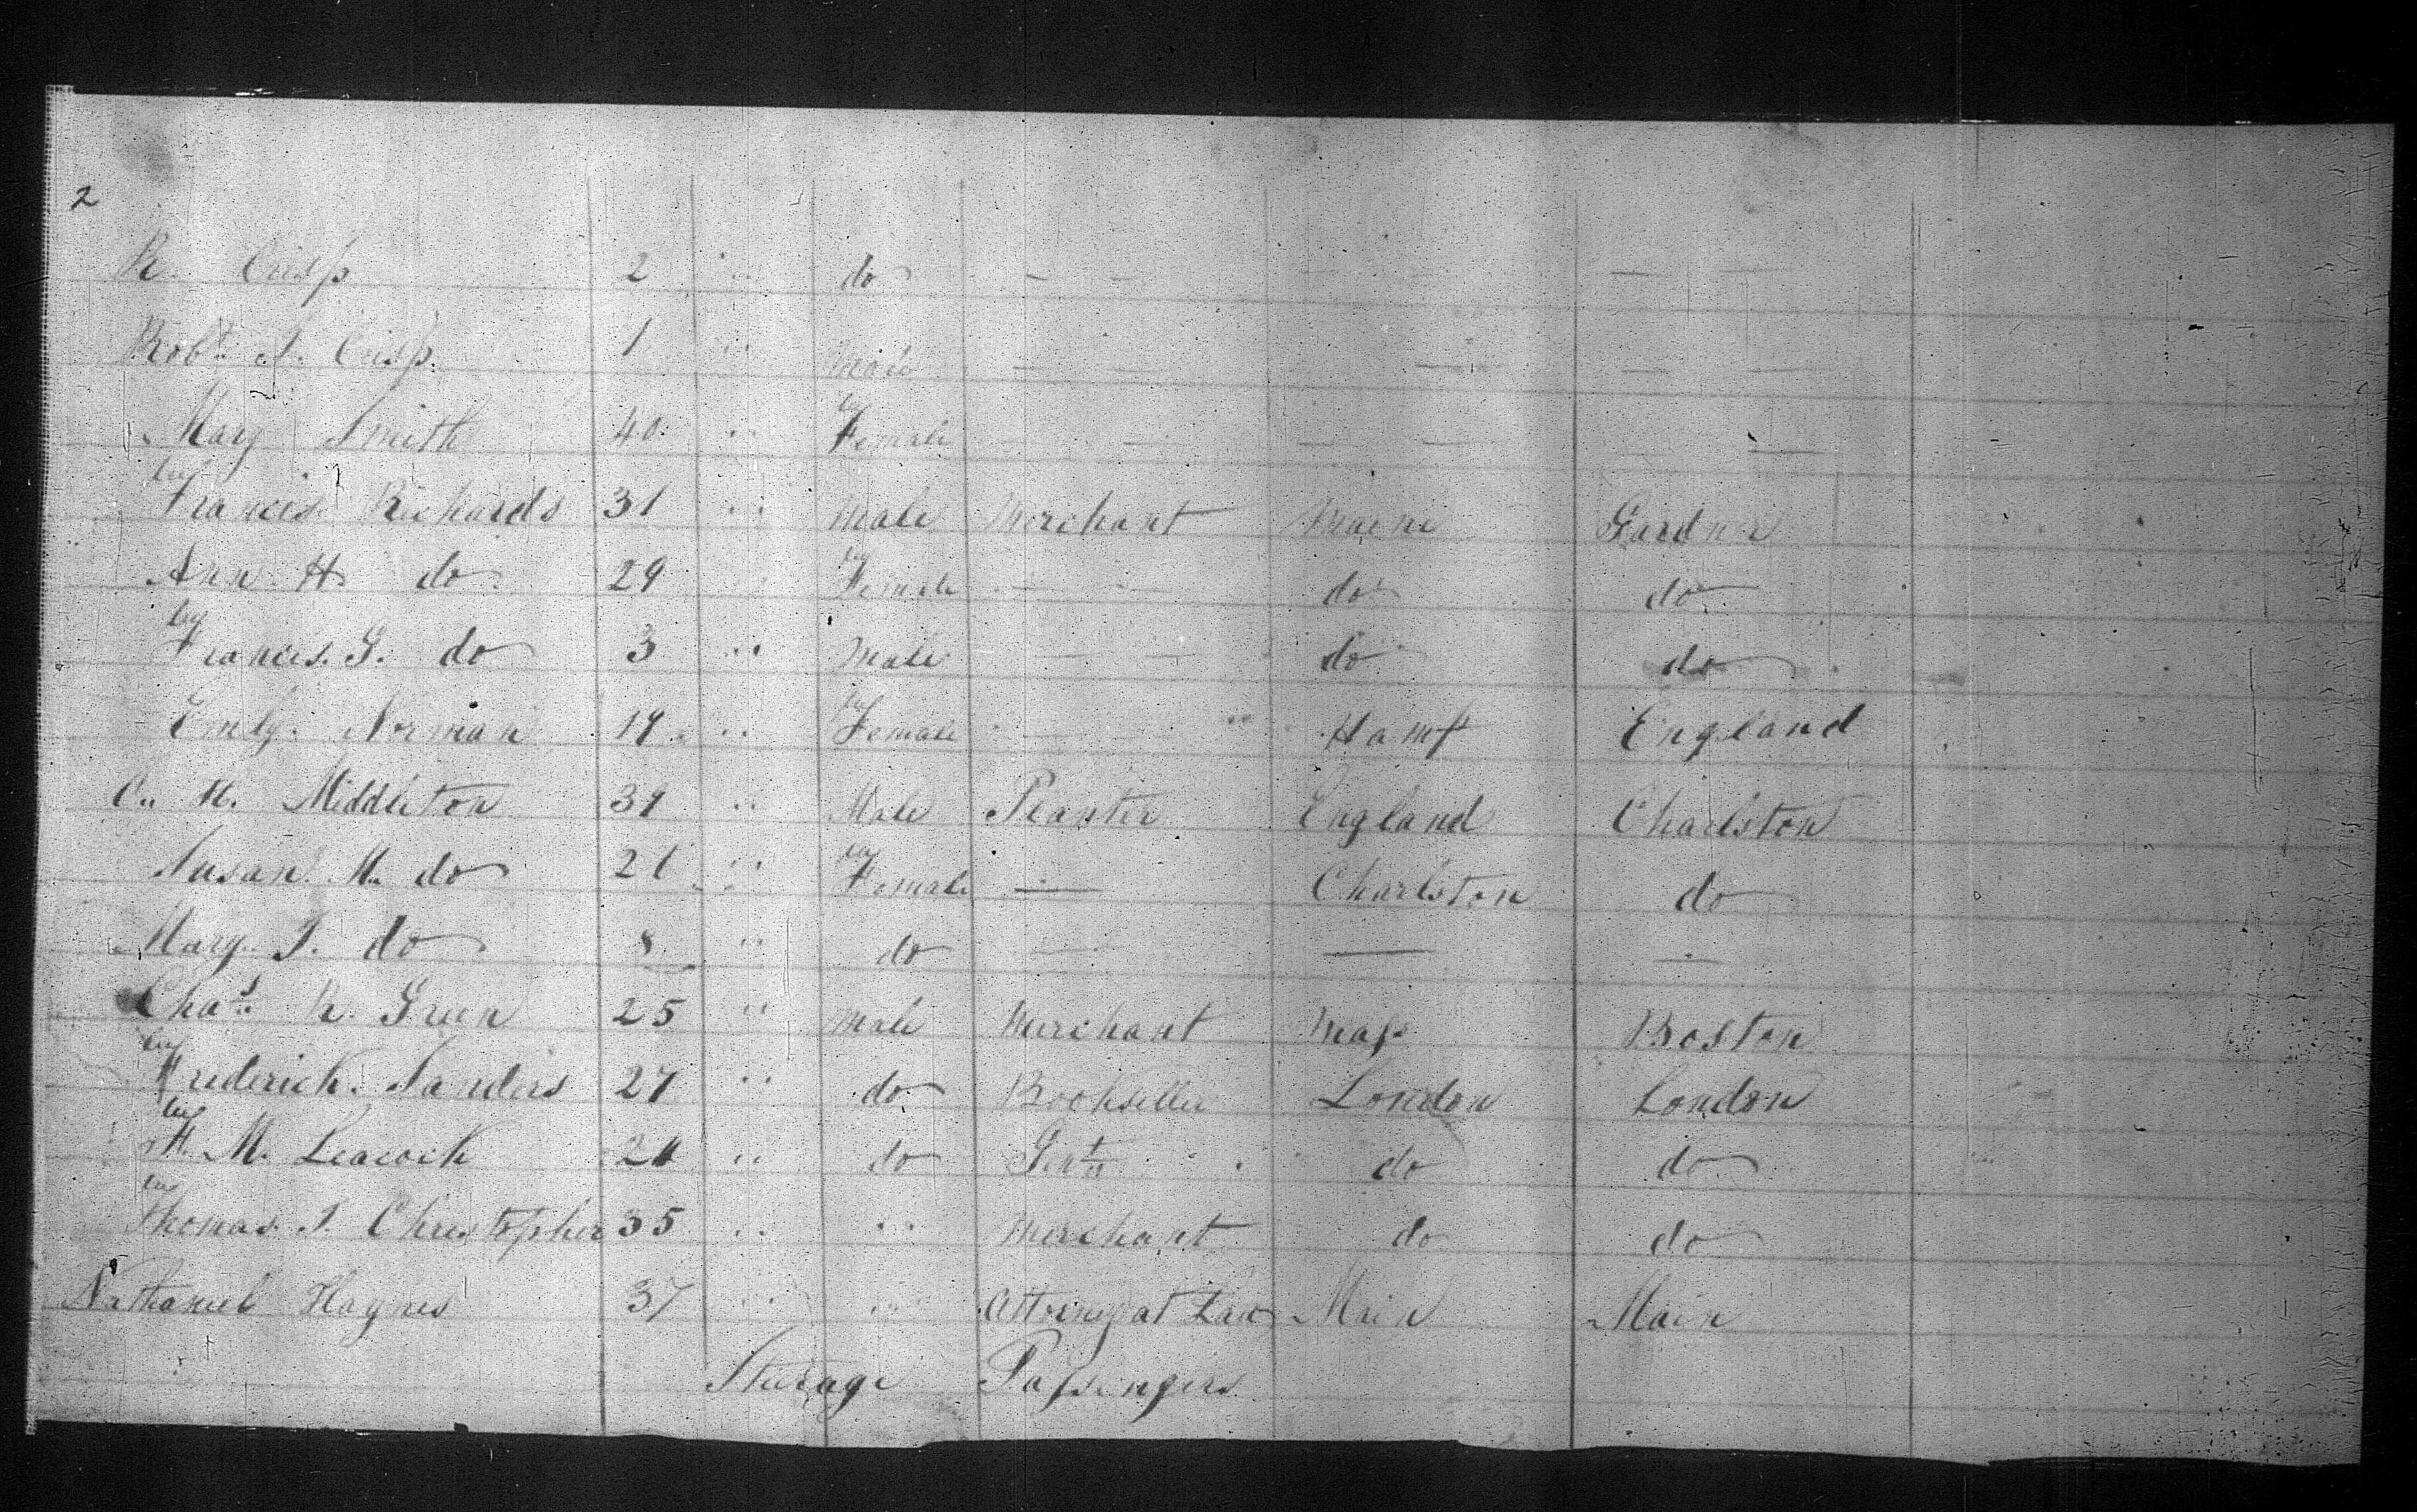 2
R. Crisp 2 " do — — — — — —
Robt. A. Crisp. 1 " Male — — — — —
Mary Smith 40 " Female — — — — — —
Francis Richards 31 " Male Merchant Maine Gardner
Ann H do 29 " Female — — do do
Francis. G. do 3 " Male — — do do
Emly. Norman 19 " Female — " Hamp England
O. H. Middleton 39 " Male Planter England Charlston
Susan M. do 21 " Female — Charlston do
Mary J. do 8 " do — — —
Chas. R. Green 25 " Male Merchant Mass Boston
Frederick. Sanders 27 " do Bookseller London London
H. M. Leacock " do Gent do do
Thomas. J. Christopher 35 " " Merchant do do
Nathaniel Haynes 37 " " Attorney at Law Main Main
Sturage Passengers